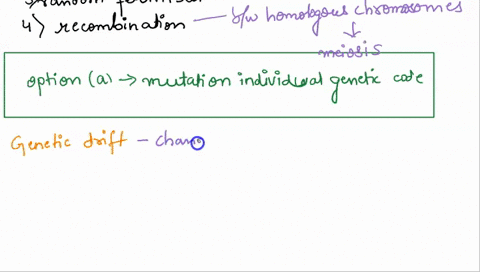 4) recombination — b/w homologous chromosomes
↓
meiosis
option (a) → mutation individual genetic code
Genetic drift – chan